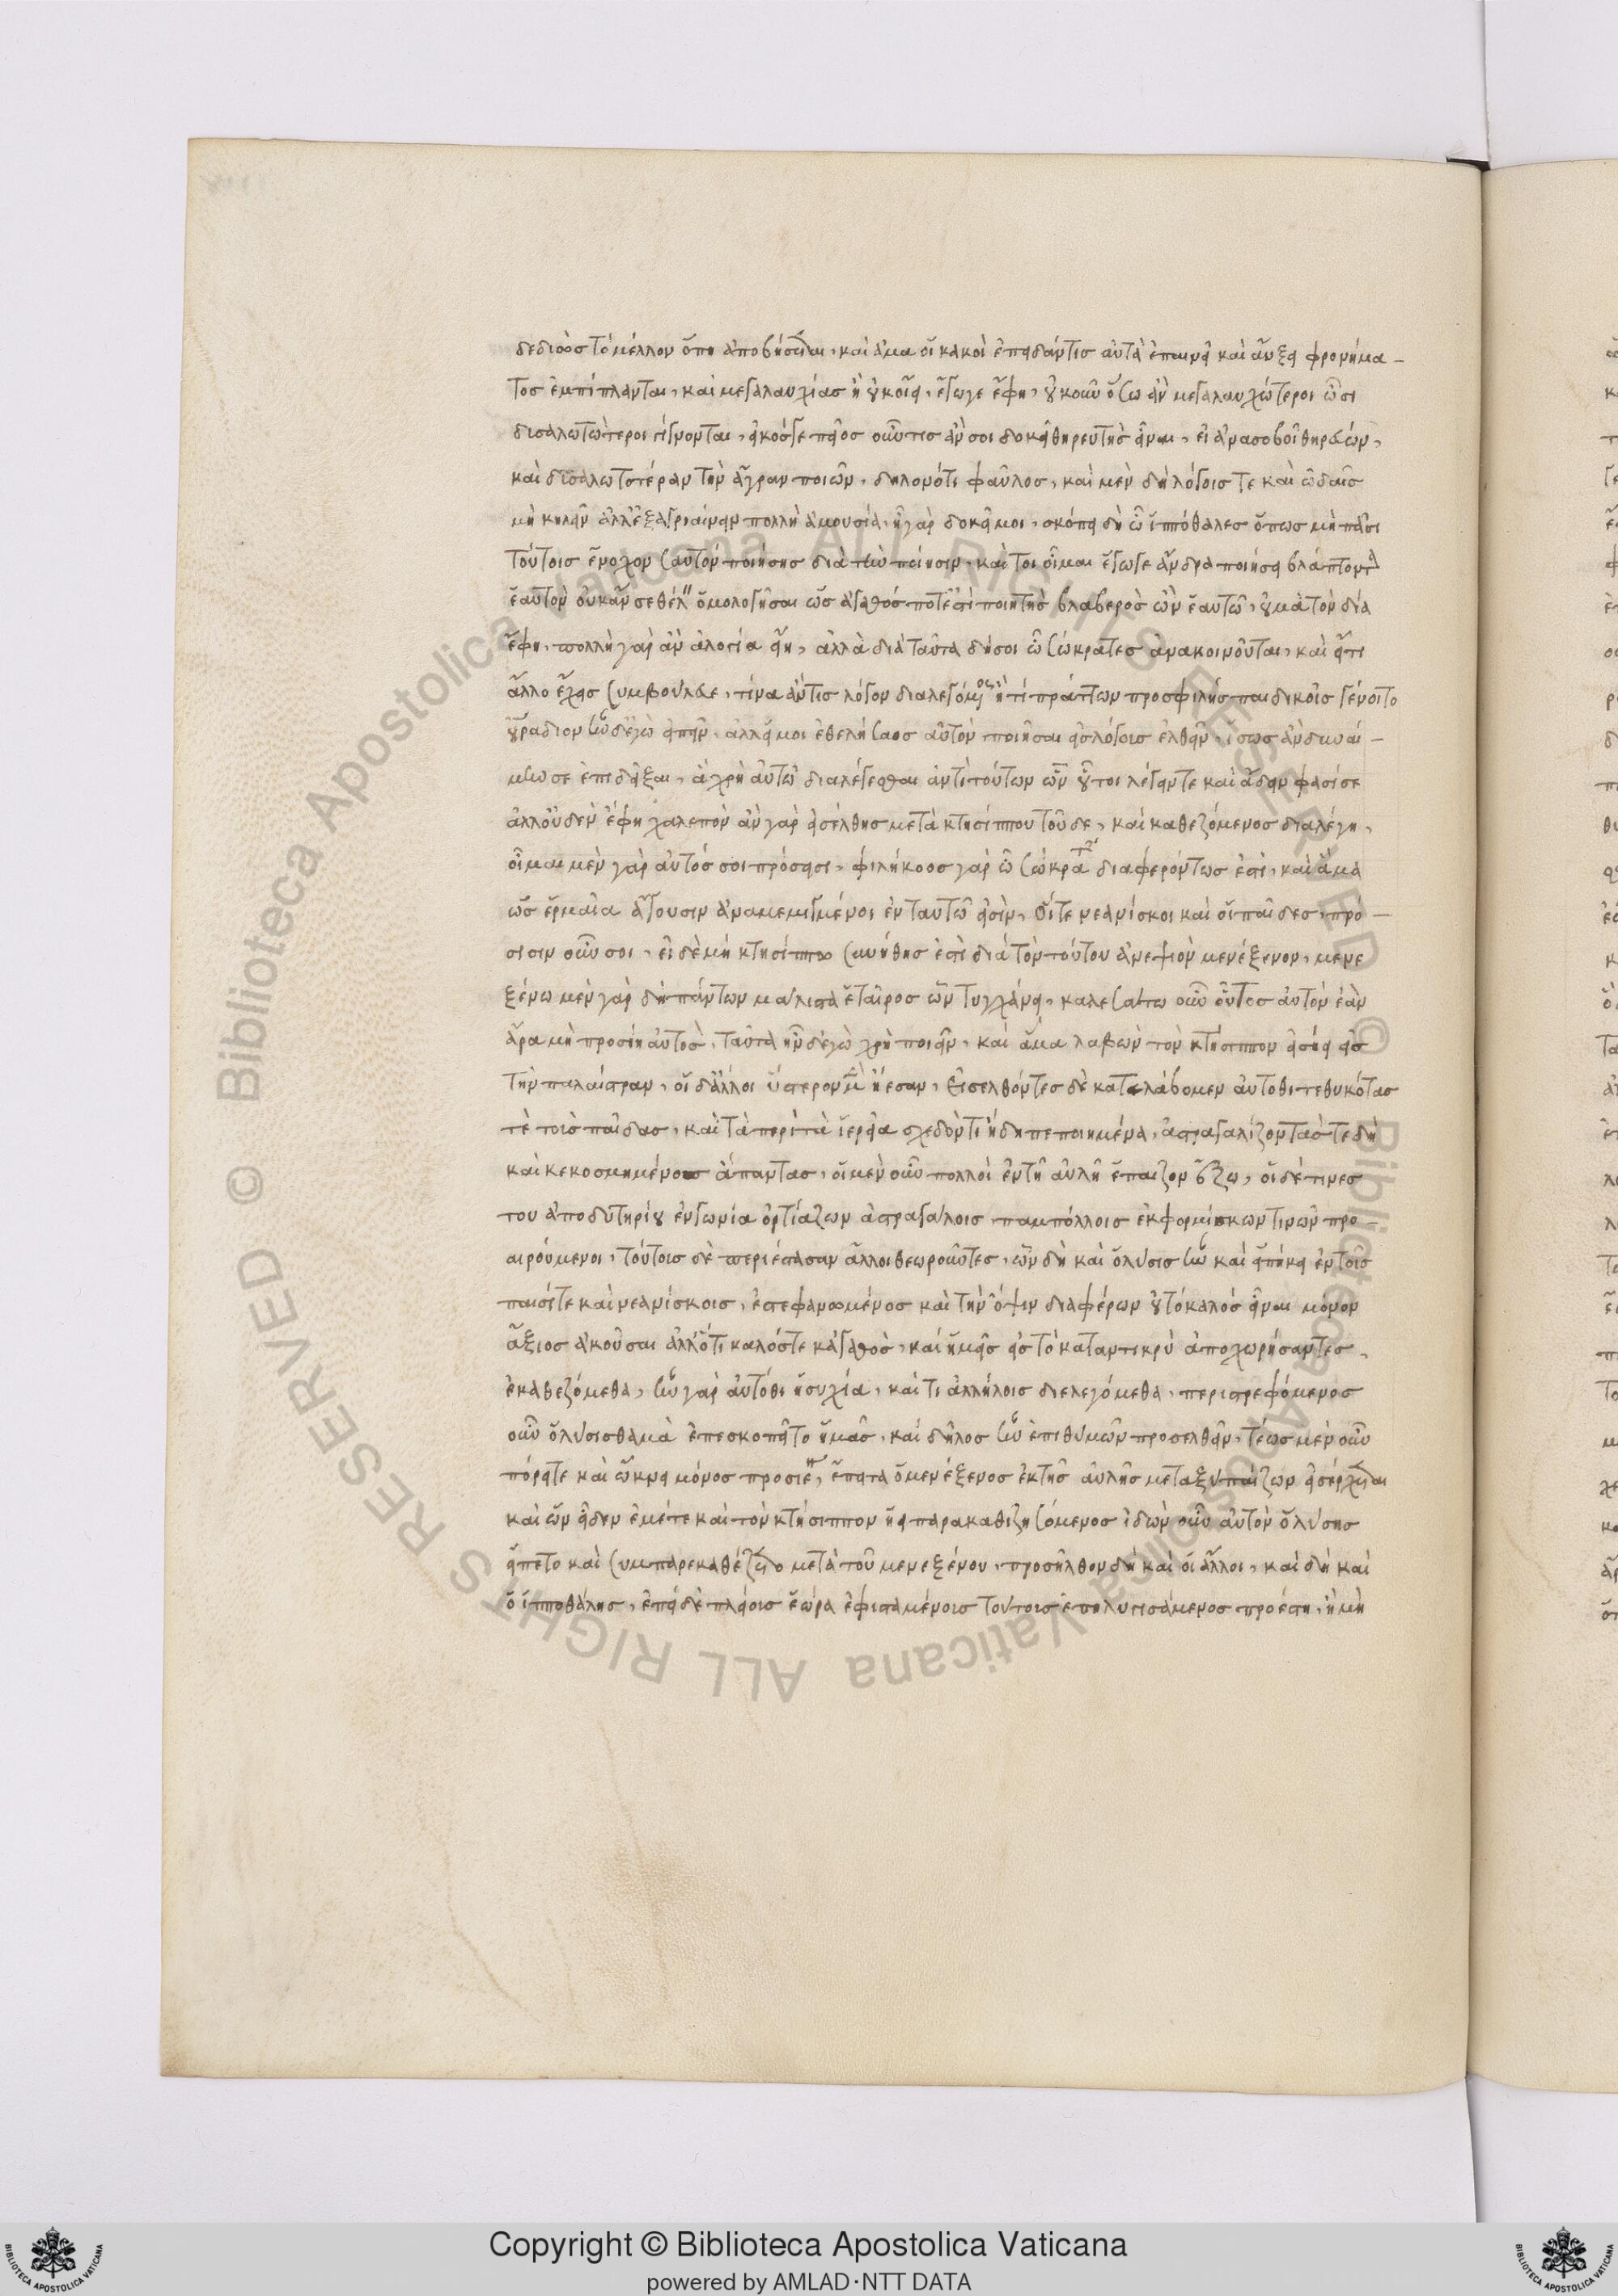 δεδιὼς τὸ μέλλον ὅπη ἀποβήσεται, καὶ ἅμα οἱ κακοὶ ἐπειδάντις αὐτὰ ἐπαινεῖ καὶ αὔξει φρονήμα-
τος ἐμπίπλανται, καὶ μεγαλαυχίας ἢ οὐκ οἴει, ἔγωγε ἔφη, οὐκοῦν ὅσω ἂν μεγαλαυχώτεροι ὦσι
δυσαλωτώτεροι γίγνονται, εἰκόσγε ποῖος οὖν τις ἄν σοι δοκεῖ θηρευτὴς εἶναι, εἰ ἀνασοβοῖ θηρεύων,
καὶ δυσαλωτοτέραν τὴν ἄγραν ποιῶν, δηλονότι φαῦλος, καὶ μὲν δὴ λόγοις τε καὶ ὠδαῖς
μὴ κηλεῖν ἀλλ' ἐξαγριαίνειν πολλὴ ἀμουσία, ἦ γὰρ δοκεῖ μοι, σκόπει δὴ ὦ ἱππόθαλες ὅπως μὴ πᾶσι
τούτοις ἔνοχον σαυτὸν ποιήσης διὰ τὴν ποίησιν, καίτοι οἶμαι ἔγωγε ἄνδρα ποιήσει βλάπτοντα
ἑαυτὸν οὐκ ἄν σε θέλειν ὁμολογῆσαι ὡς ἀγαθός ποτ' ἐστὶ ποιητὴς βλαβερὸς ὢν ἑαυτῶ, οὐ μὰ τὸν δία
ἔφη, πολλὴ γὰρ ἂν ἀλογία εἴη, ἀλλὰ διὰ ταῦτα δή σοι ὦ σώκρατες ἀνακοινοῦται, καὶ εἴ τι
ἄλλο ἔχεις συμβούλευε, τίνα ἄν τις λόγον διαλεγόμενος ἢ τί πράττων προσφιλὴς παιδικοῖς γένοιτο
οὐ ῥάδιον ἦν δ' ἐγὼ εἰπεῖν, ἀλλ' εἴ μοι ἐθελήσαις αὐτὸν ποιῆσαι εἰς λόγοις ἐλθεῖν, ἴσως ἂν δυναί-
μην σε ἐπιδεῖξαι, ἃ χρὴ αὐτῶ διαλέγεσθαι ἀντὶ τούτων ὧν οὗτοι λέγειν τε καὶ ἄδειν φασί σε
ἀλλ' οὐδὲν ἔφη χαλεπὸν ἂν γὰρ εἰσέλθης μετὰ κτησίππου τοῦδε, καὶ καθεζόμενος διαλέγη,
οἶμαι μὲν γὰρ αὐτός σοι πρόσεισι, φιλήκοος γὰρ ὦ σώκρατες διαφερόντως ἐστὶ, καὶ ἅμα
ὡς ἑρμαῖα ἄγουσιν ἀναμεμιγμένοι ἐν ταυτῶ εἰσὶν, οἵ τε νεανίσκοι καὶ οἱ παῖδες, πρό-
σισιν οὖν σοι, εἰ δὲ μὴ κτησίππω συνήθης ἐστὶ διὰ τὸν τούτου ἀνεψιὸν μενέξενον, μενε
ξένω μὲν γὰρ δὴ πάντων μάλιστα ἑταῖρος ὢν τυγχάνει, καλεσάτω οὖν οὗτος αὐτὸν ἐὰν
ἄρα μὴ προσίη αὐτὸς, ταῦτα ἦν δ' ἐγὼ χρὴ ποιεῖν, καὶ ἅμα λαβὼν τὸν κτήσιππον εἰσήει εἰς
τὴν παλαίστραν, οἱ δ' ἄλλοι ὕστερον ἡμῶν ἤεσαν, Εἰσελθόντες δὲ κατελάβομεν αὐτόθι τεθυκότας
τὲ τοὺς παῖδας, καὶ τὰ περὶ τὰ ἱερεῖα σχεδόν τι ἤδη πεποιημένα, ἀστραγαλίζοντάς τε δὴ
καὶ κεκοσμημένους ἅπαντας, οἱ μὲν οὖν πολλοὶ ἐν τῆ αὐλῆ ἔπαιζον ἔξω, οἱ δέ τινες
του ἀποδυτηρίου ἐν γωνία ἀρτίαζων ἀστραγάλοις παμπόλλοις ἐκ φορμίσκων τινῶν προ-
αιρούμενοι, τούτοις δὲ περιέστασαν ἄλλοι θεωροῦντες, ὧν δὴ καὶ ὁ λύσις ἦν καὶ εἱστήκει ἐν τοῖς
παισί τε καὶ νεανίσκοις, ἐστεφανωμένος καὶ τὴν ὄψιν διαφέρων οὐ τὸ καλὸς εἶναι μόνον
ἄξιος ἀκοῦσαι ἀλλ' ὅτι καλός τε κἀγαθὸς, καὶ ἡμεῖς εἰς τὸ καταντικρὺ ἀποχωρήσαντες,
ἐκαθεζόμεθα, ἦν γὰρ αὐτόθι ἡσυχία, καὶ τι ἀλλήλοις διελεγόμεθα, περιστρεφόμενος
οὖν ὁ λύσις θαμὰ ἐπεσκοπεῖτο ἡμᾶς, καὶ δῆλος ἦν ἐπιθυμῶν προσελθεῖν, τέως μὲν οὖν
ἠπόρειτε καὶ ὤκνει μόνος προσιέναι, ἔπειτα ὁ μενέξενος ἐκ τῆς αὐλῆς μεταξὺ παίζων εἰσέρχεται
καὶ ὡς εἶδεν ἐμέ τε καὶ τὸν κτήσιππον ἤει παρακαθιζησόμενος ἰδὼν οὖν αὐτὸν ὁ λύσις
εἵπετο καὶ συμπαρεκαθέζετο μετὰ τοῦ μενεξένου, προσῆλθον δὴ καὶ οἱ ἄλλοι, καὶ δὴ καὶ
ὁ ἱπποθάλης, ἐπεὶ δὲ πλείοις ἑώρα ἐφισταμένοις τούτοις ἐπηλυγισάμενος προέστη, ἧ μὴ